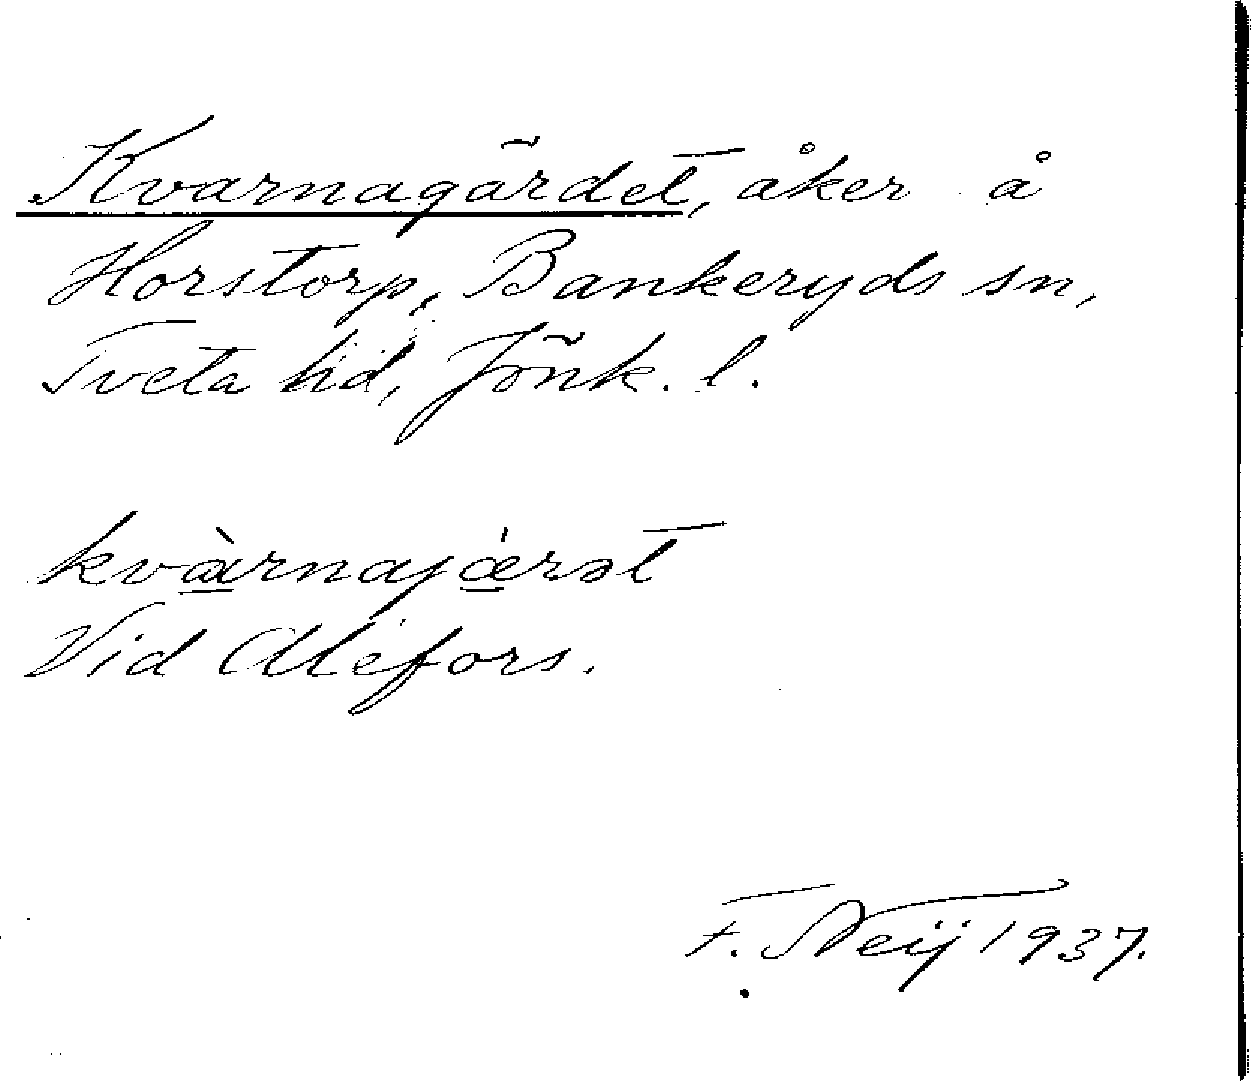 Kvarnagärdet, åker å
Horstorp, Bankeryds sn,
Tveta hd, Jönk. l.
kvàrnajǽrət
Vid Alefors.
F. Neij 1937.